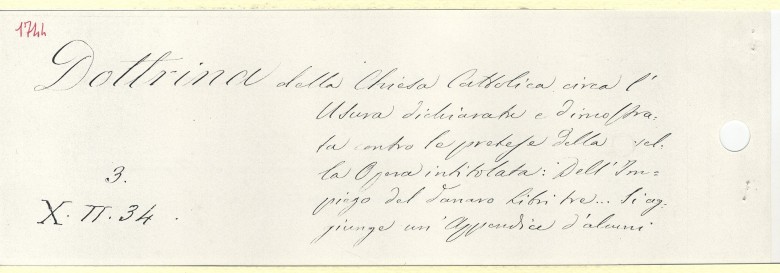 1744
Dottrina della Chiesa Cattolica circa l'
Usura dichiarata e dimostra-
ta contro le pretese della
la Opera intitolata: Dell'Im-
3.
piego del Danaro Libri tre... Si ag-
X. II. 34.
giunge un'Appendice d'alcuni